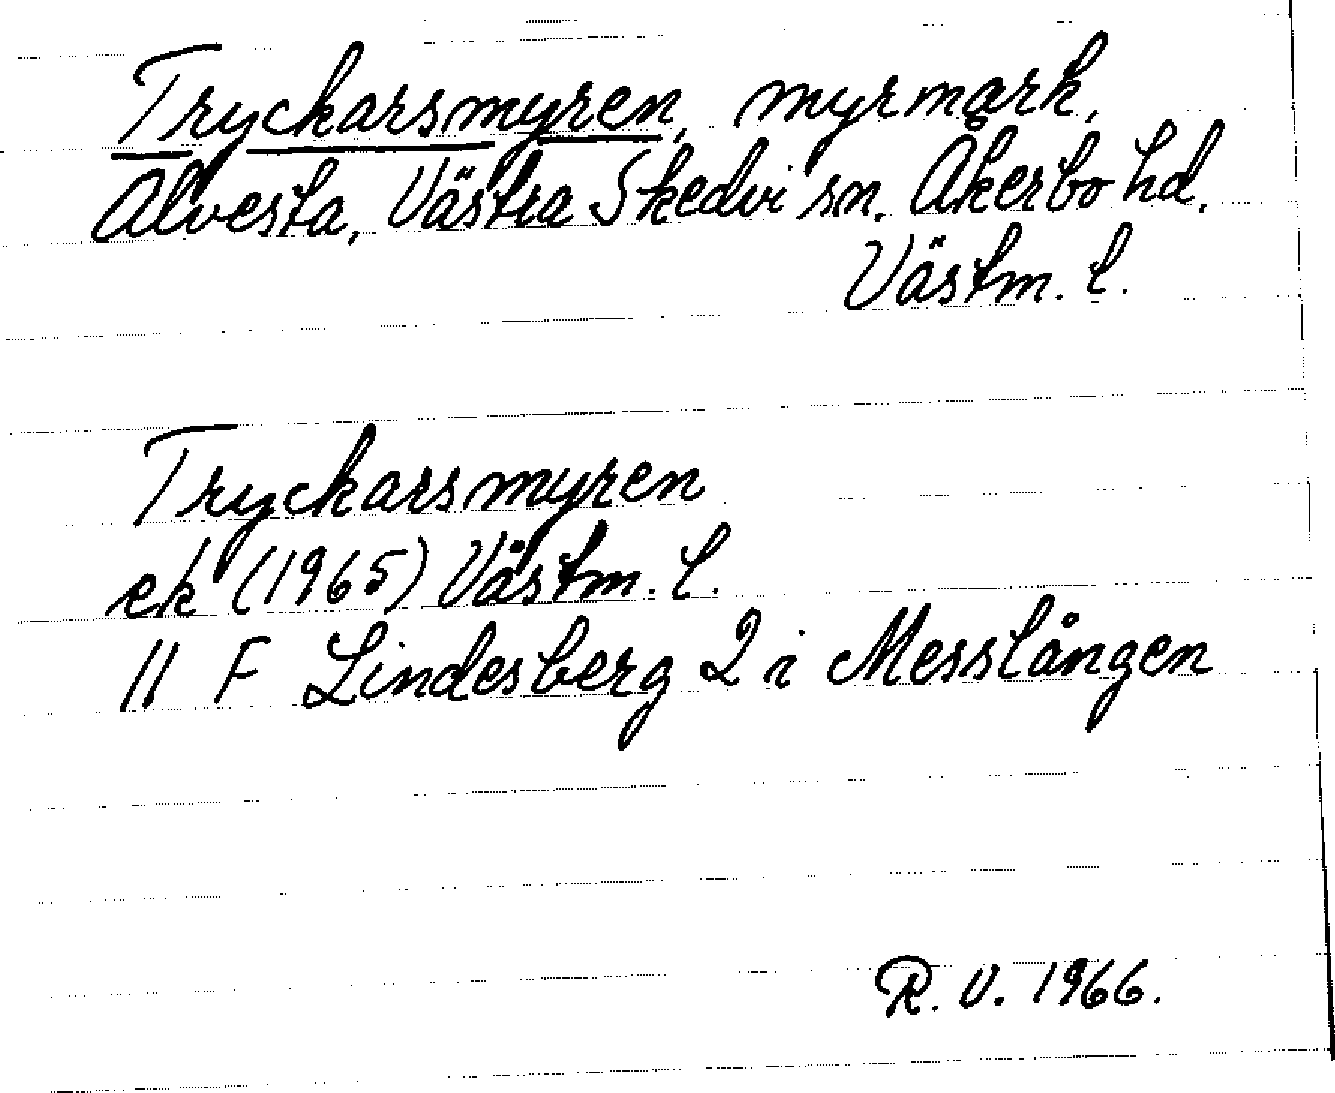 Tryckarsmyren, myrmark,
Alvesta, Västra Skedvi sn. Åkerbo hd.
Västm. l.
Tryckarsmyren
ek (1965) Västm. l.
11 F Lindesberg 2 i Messlången
R. V. 1966.